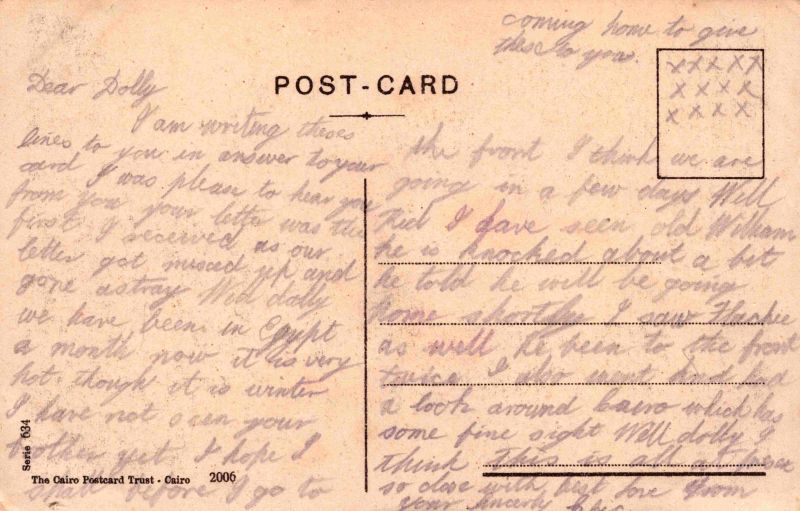 coming home to give
these to you.
POST-CARD
x x x x x
x x x x
x x x x
Dear Dolly
I am writing theses
lines to you in answer to your
card I was please to hear
from you your letter was the
first I received as our
letter got missed up and
gone astray Well dolly
we have been in Egypt
a month now it is very
hot though it is winter
I have not seen your
brother yet I hope I
shall before I go to
the front I think we are
going in a few days Well
Kid I have seen old William
he is knocked about a bit
he told he will be going
home shortly I saw
as well he been to the front
twice I also went and had
a look around Cairo which has
some fine sight Well dolly I
think this is all at
so close with best love from
your sincerly
Serie 634
The Cairo Postcard Trust - Cairo 2006